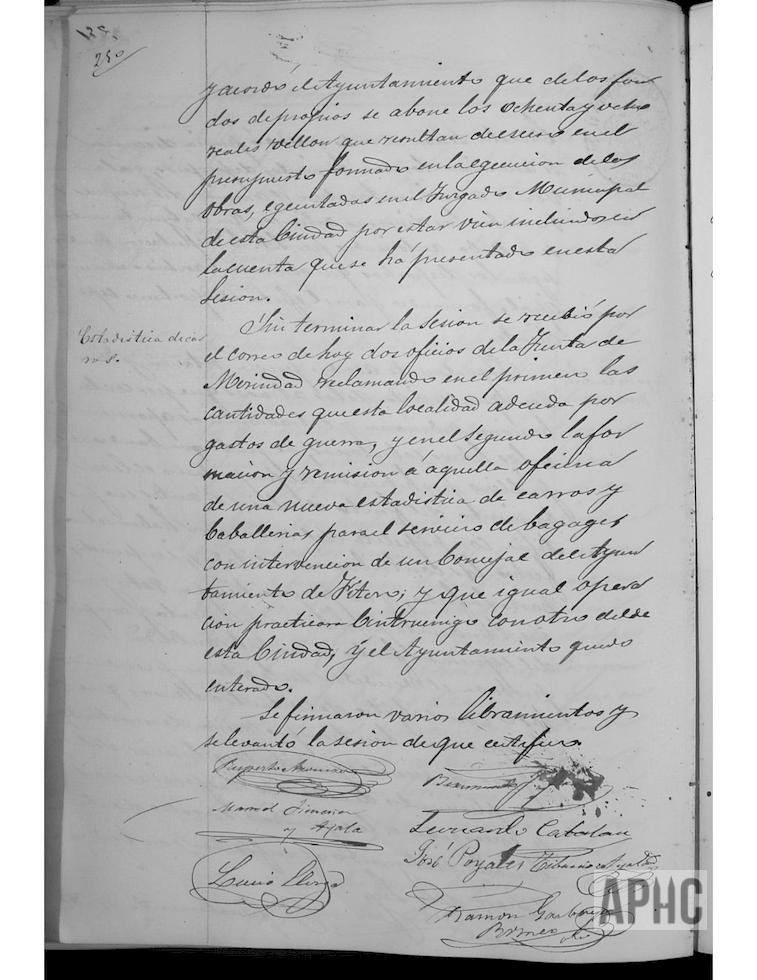 250
y acordó el Ayuntamiento que de los fon
dos de propios se abone los ochenta y ocho
reales vellon que resultan de esceso en el
presupuesto formado en la egecucion de las
obras, egecutadas en el Juzgado Municipal
de esta Ciudad por estar vien incluidos en
la cuenta que se há presentado en esta
Sesion.
Estadistica de car
ros.
Sin terminar la sesion se recibió por
el correo de hoy dos oficios de la Junta de
Merindad reclamando en el primero las
cantidades que esta localidad adeuda por
gastos de guerra, y en el segundo la for
macion y remision á aquella oficina
de una nueva estadistica de carros y
Caballerias para el servicio de bagages
con intervencion de un Concejal del Ayun
tamiento de Fitero; y que igual opera
cion practicara Cintruenigo con otro del de
esta Ciudad, y el Ayuntamiento quedo
enterado.
Se firmaron varios libramientos y
se levantó la sesion de que certifico.
Ruperto
Manuel Jimenez
y Ayala
Fernando Catalan
José Poyales Tiburcio
Lucio
Ramon Garbayo
APHC